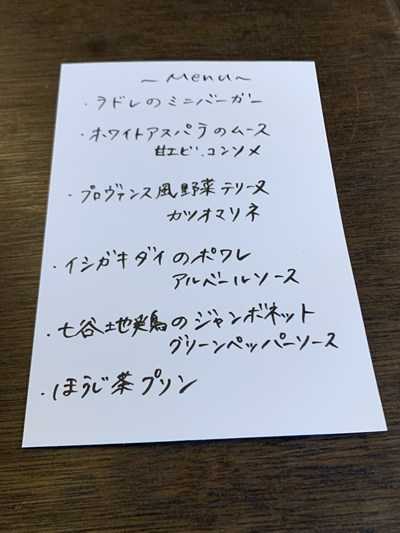 ~Menu~
・ラドレのミニバーガー
・ホワイトアスパラのムース
甘エビ、コンソメ
・プロヴァンス風野菜テリーヌ
カツオマリネ
・イシガキダイのポワレ
アルベールソース
・七谷地鶏のジャンボネット
グリーンペッパーソース
・ほうじ茶プリン